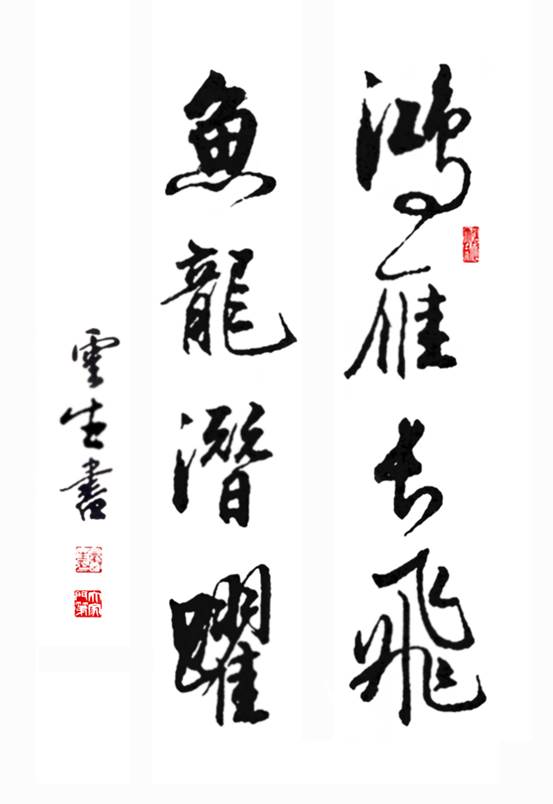 鴻雁长飛
魚龍潛躍
雲生書